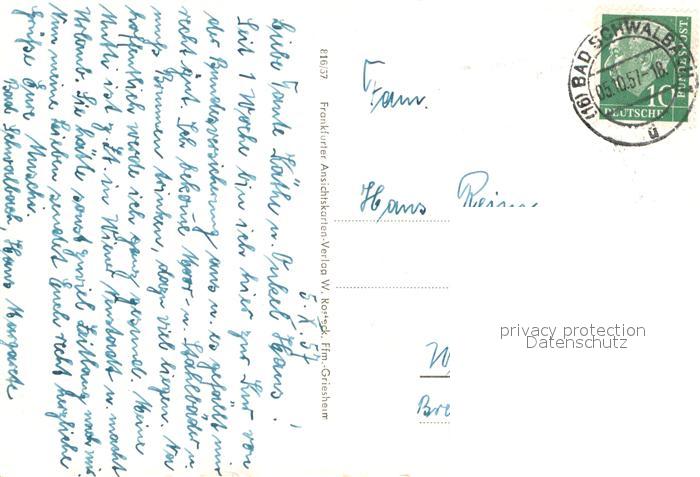 5.X.57
Liebe Tante Käthe u. Onkel Hans!
Seit 1 Woche bin ich hier zur Kur von
der Bundesversicherung aus u. es gefällt mir
recht gut. Ich bekomme Moor- u. Stahlbäder u.
muss Brunnen trinken, dazu viel liegen. Na
hoffentlich werde ich ganz gesund. Meine
Mutti ist z. Zt. in Wiener Neustadt u. macht
Urlaub. Sie hätte sonst zuviel Zeitlang nach mir.
Nun meine Lieben sendet Euch recht herzliche
Grüße Eure
Bad Schwalbach, Haus Margarete
816/57 Frankfurter Ansichtskarten-Verlag W. Rotteck, Ffm.-Griesheim
Fam.
Hans
(16) BAD SCHWALBACH
05.10.57-18
ü
10
DEUTSCHE
BUNDESPOST
privacy protection
Datenschutz